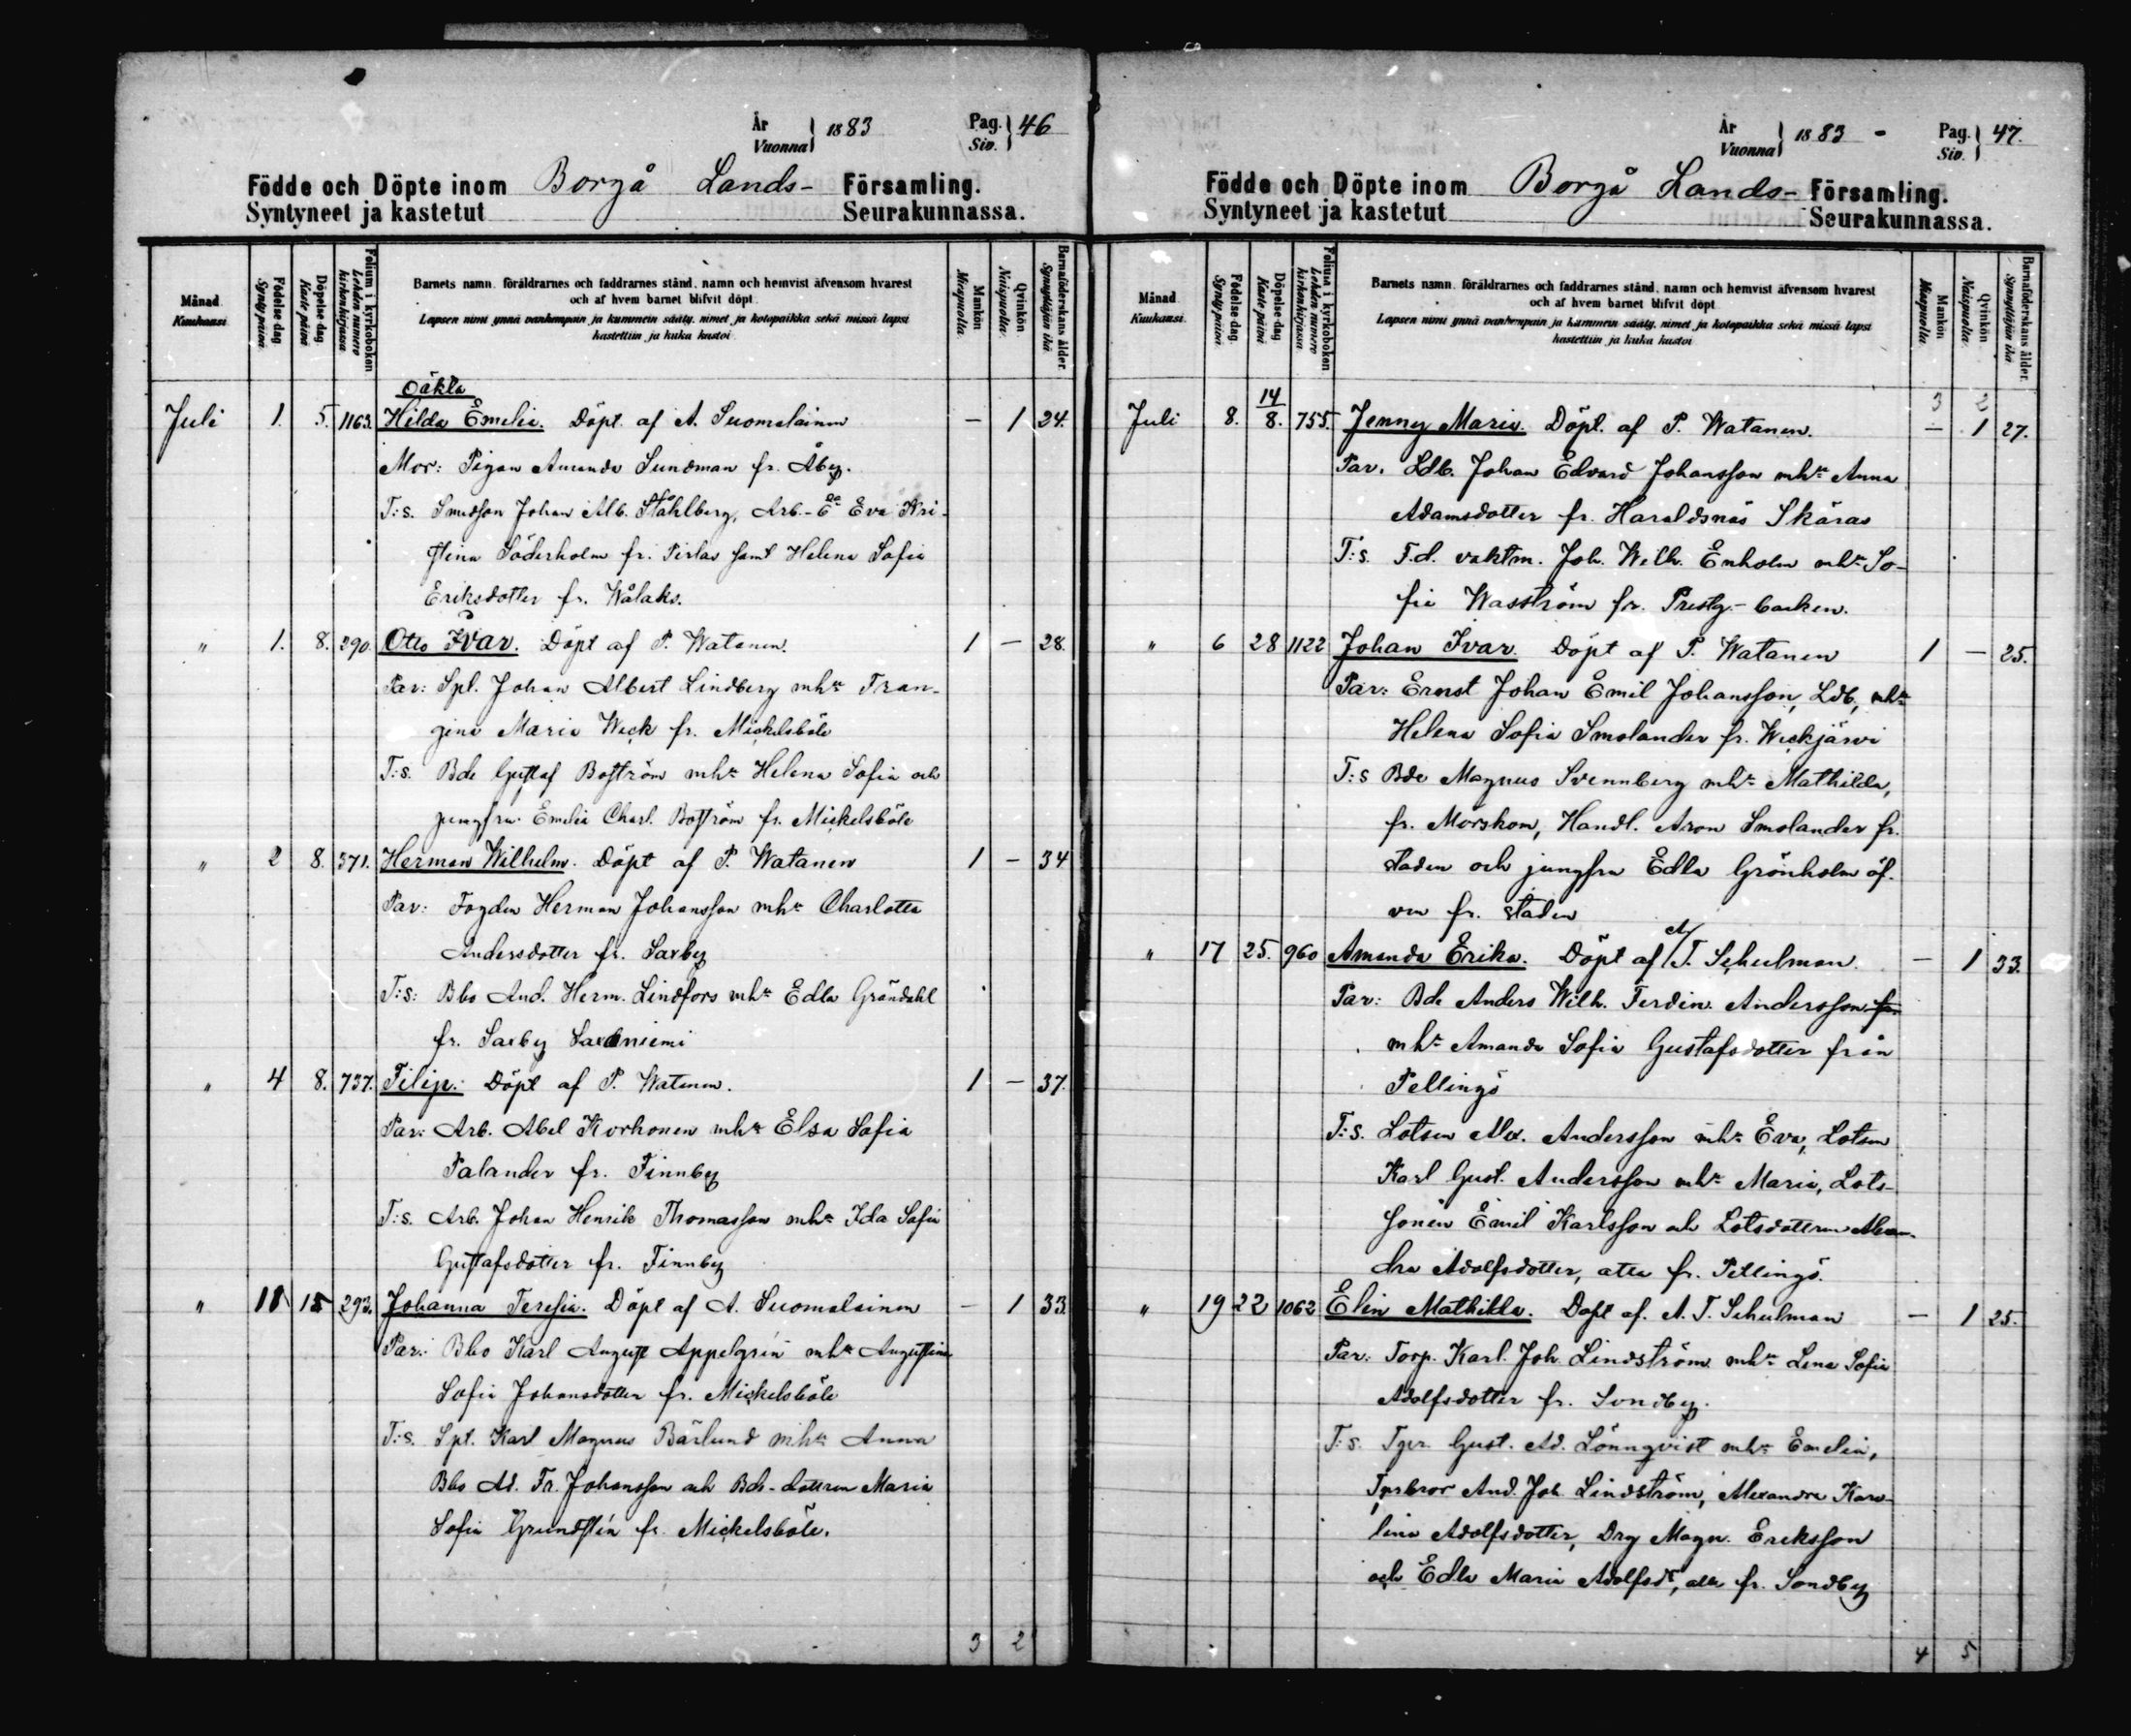 År
Vuonna 1883
Pag.
Siv. 46
Födde och Döpte inom Borgå Lands- Församling.
Syntyneet ja kastetut Seurakunnassa.
Månad
Kuukausi
Födelse dag.
Synty päivä
Döpelse dag
Kaste päivä
Folium i kyrkoboken
Lehden numero kirkonkirjassa
Barnets namn, föräldrarnes och faddrarnes stånd, namn och hemvist äfvensom hvarest
och af hvem barnet blifvit döpt.
Lapsen nimi ynnä vanhempain ja kummein sääty, nimet ja kotopaikka sekä missä lapsi
kastettiin ja kuka kastoi
Mankön
Miespuolia.
Qvinkön
Naispuolia.
Barnaföderskans ålder.
Synnyttäjän ikä
Oäkta
Juli 1. 5. 1163. Hilda Emelia. Döpt af A. Suomalainen — 1 24.
Mor: Pigan Amanda Sundman fr. Åby.
T:s. Smedson Johan Alb. Ståhlberg, Arb.- Eva Kri-
stina Söderholm fr. Pirlax samt Helena Sofia
Eriksdotter fr. Wålaks.
" 1. 8. 290. Otto Ivar. Döpt af P. Watanen. 1 — 28.
Par: Spl. Johan Albert Lindberg mhu Fran-
gina Maria Weck fr. Mickelsböle
T:s. Bde Gustaf Boström mhu Helena Sofia och
jungfru Emelia Charl. Boström fr. Mickelsböle
" 2 8. 371. Herman Wilhelm. Döpt af P. Watanen 1 — 34
Par: Fogden Herman Johansson mhu Charlotta
Andersdotter fr. Saxby
T:s: Bbo And. Herm. Lindfors mhu Edla Gröndahl
fr. Saxby Saxaniemi
" 4 8. 737. Filip. Döpt af P. Watanen. 1 — 37.
Par: Arb. Abel Korhonen mhu Elsa Sofia
Palander fr. Finnby
T:s. Arb. Johan Henrik Thomasson mhu Ida Sofia
Gustafsdotter fr. Finnby
" 11 15 293. Johanna Teresia. Döpt af A. Suomalainen — 1 33
Par: Bbo Karl August Appelgrén mhu Augustina
Sofia Johansdotter fr. Mickelsböle
T:s. Spt. Karl Magnus Bärlund mhu Anna
Bbo Ad. Fr. Johansson och Bde-dottren Maria
Sofia Grundstén fr. Mickelsböle.
3 2
År
Vuonna 1883 -
Pag.
Siv. 47.
Födde och Döpte inom Borgå Lands- Församling.
Syntyneet ja kastetut Seurakunnassa.
Månad
Kuukausi
Födelse dag.
Synty päivä
Döpelse dag
Kaste päivä
Folium i kyrkoboken
Lehden numero kirkonkirjassa
Barnets namn, föräldrarnes och faddrarnes stånd, namn och hemvist äfvensom hvarest
och af hvem barnet blifvit döpt.
Lapsen nimi ynnä vanhempain ja kummein sääty, nimet ja kotopaikka sekä missä lapsi
kastettiin ja kuka kastoi
Mankön
Miespuolia.
Qvinkön
Naispuolia.
Barnaföderskans ålder.
Synnyttäjän ikä
3 2
Juli 8. 14/8. 755. Jenny Maria. Döpt. af P. Watanen. — 1 27.
Par. Ldb. Johan Edvard Johansson mhu Anna
Adamsdotter fr. Haraldsnäs Skäras
T:s. F.d. vaktm. Joh. Wilh. Enholm mhu So-
fia Wasström fr. Prestg.-backen.
" 6 28 1122 Johan Ivar. Döpt af P. Watanen 1 — 25.
Par: Ernst Johan Emil Johansson, Ldb, mhu
Helena Sofia Smolander fr. Weckjärvi
T:s Bde Magnus Svennberg mhu Mathilda,
fr. Mörskom, Handl. Aron Smolander fr.
staden och jungfru Edla Grönholm äf-
ven fr. staden
" 17 25. 960 Amanda Erika. Döpt af A. T. Schulman. — 1 33.
Par: Bde Anders Wilh. Ferdin. Andersson fr.
mhu Amanda Sofia Gustafsdotter från
Pellinge
T:s. Lotsen Alex. Andersson mhu Eva, Lotsen
Karl Gust. Andersson mhu Maria, Lots-
sonen Emil Karlsson och Lotsdottren Alexan-
dra Adolfsdotter, alla fr. Pellinge.
" 19 22 1062 Elin Mathilda. Döpt af. A. T. Schulman — 1 25.
Par: Torp. Karl. Joh Lindström mhu Lena Sofia
Adolfsdotter fr. Sondby.
T:s. Tpr. Gust. Ad. Lönnqvist mhu Emelia,
Tprbror And. Joh Lindström, Alexandra Karo-
lina Adolfsdotter, Drg Magn. Eriksson
och Edla Maria Adolfsdr, alla fr. Sondby
4 5